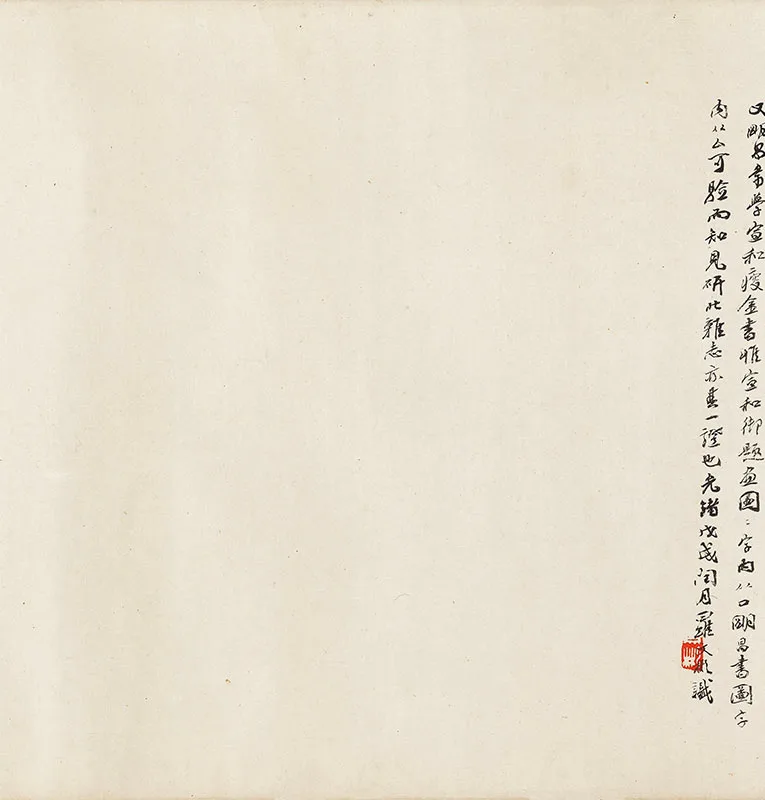 又明昌書學宣和瘦金書惟宣和御題畫圖〻字內从口明昌書圖字
內从厶可驗而知見研北雜志亦其一證也光緒戊戌閏月羅文彬識